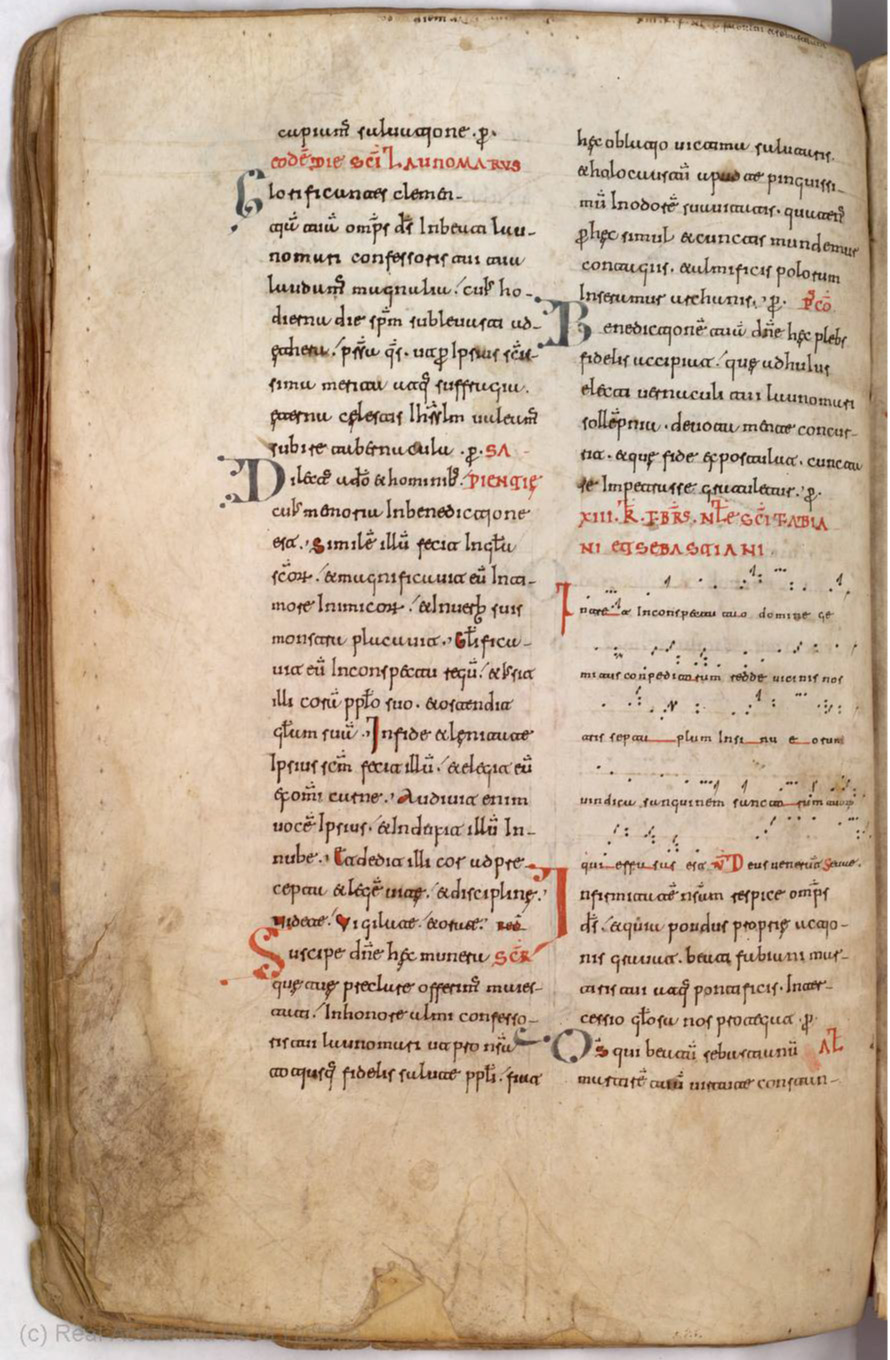 capiamꝰ saluatione .ꝑ.
EODĒ DIE SC̄I LAUNOMARUS
Glorificantes clemen-
tiā tuā omp̄s d̄s In beati lau-
nomari confessoris tui tua
laudamꝰ magnalia / cuiꝰ ho-
dierna die sp̄m subleuasti ad
ethera / p̄sta q̄s. ut ꝓ Ipsius sc̄is-
sima merita atq̄ suffragia.
eterna celestis Ihr̄slm ualeamꝰ
subire tabernacula .ꝑ. SA
Dilectꝰ a dō & hominibꝰ. PIENTIE
cuiꝰ memoria In benedictione
est. Similē illū fecit In gl̄a
sc̄oꝝ / & magnificauit eū In ti-
more Inimicoꝝ / & In uerb̄ suis
monstra placauit. Gl̄ifica-
uit eū In conspectu regū / & iussit
illi corā ppl̄o suo. & ostendit
gl̄am suā. In fide & lenitate
Ipsius sc̄m fecit illū. & elegit eū
ex om̄i carne. Audiuit enim
uocē Ipsius. & Induxit illū In-
nube. Et dedit illi cor ad pre-
cepta & legē uite / & discipline.
uidete / Vigilate / & orate.
Suscipe dn̄e hec munera SCR̄
que tue preclare offerimꝰ maies-
tati / In honore almi confesso-
ris tui launomari ut pro nr̄a
fidelis salute ppl̄i. fiat
hec oblatio uictima salutaris.
& holocaustū atque pinguissi-
mū In odorē suauitatis.
ꝓ hec simul & cunctis mundemur
contagiis. & almificis polorum
Inseramur archanis. ꝑ. P̄CŌ
Benedictionē tuā dn̄e hec plebs
fidelis accipiat / que ad huius
electi uernaculi tui launomari
sollēpnia. deuota mente concur-
rit. & que fide expostulat. cuncta
se Impetrasse gratuletur. ꝑ.
XIII. K̄. FBR̄S. NT̄LE SC̄I FABIA
NI ET SEBASTIANI
Intret In conspectu tuo domine ge
mitus conpeditorum redde uicinis nos
tris septu plum In si nu e orum
uindica sanguinem sanctorum tuorum
qui effusus est V̄ Deus uenerūt Seuue.
Infirmitatē nr̄am respice omp̄s
d̄s / & quia pondus proprie actio-
nis grauat. beati fabiani mar-
tiris tui atq̄ pontificis. Inter-
cessio gl̄osa nos protegat .ꝑ.
D̄s qui beatū sebastianū AL̄
martirē tuū uirtute constan-